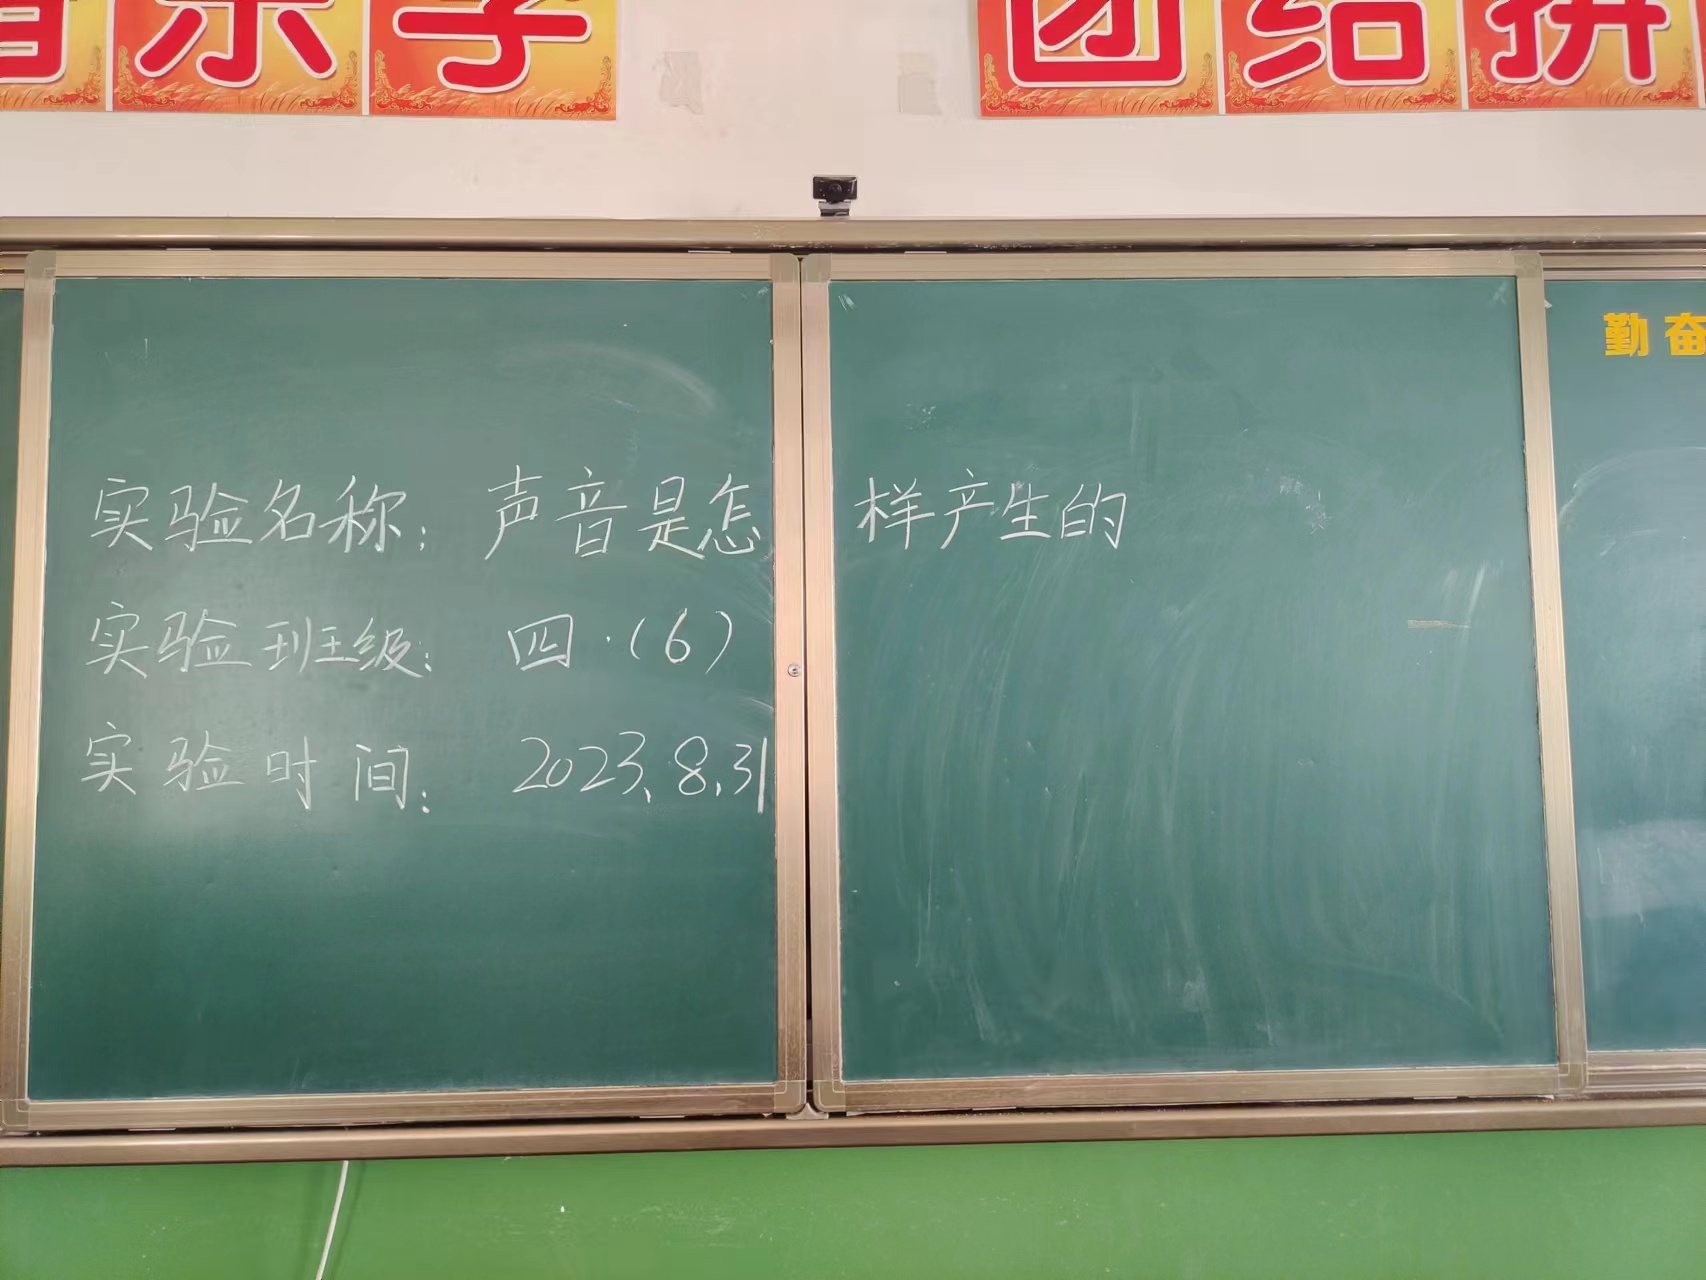 乐学
团结拼
勤奋
实验名称：声音是怎样产生的
实验班级：四·（6）
实验时间：2023.8.31